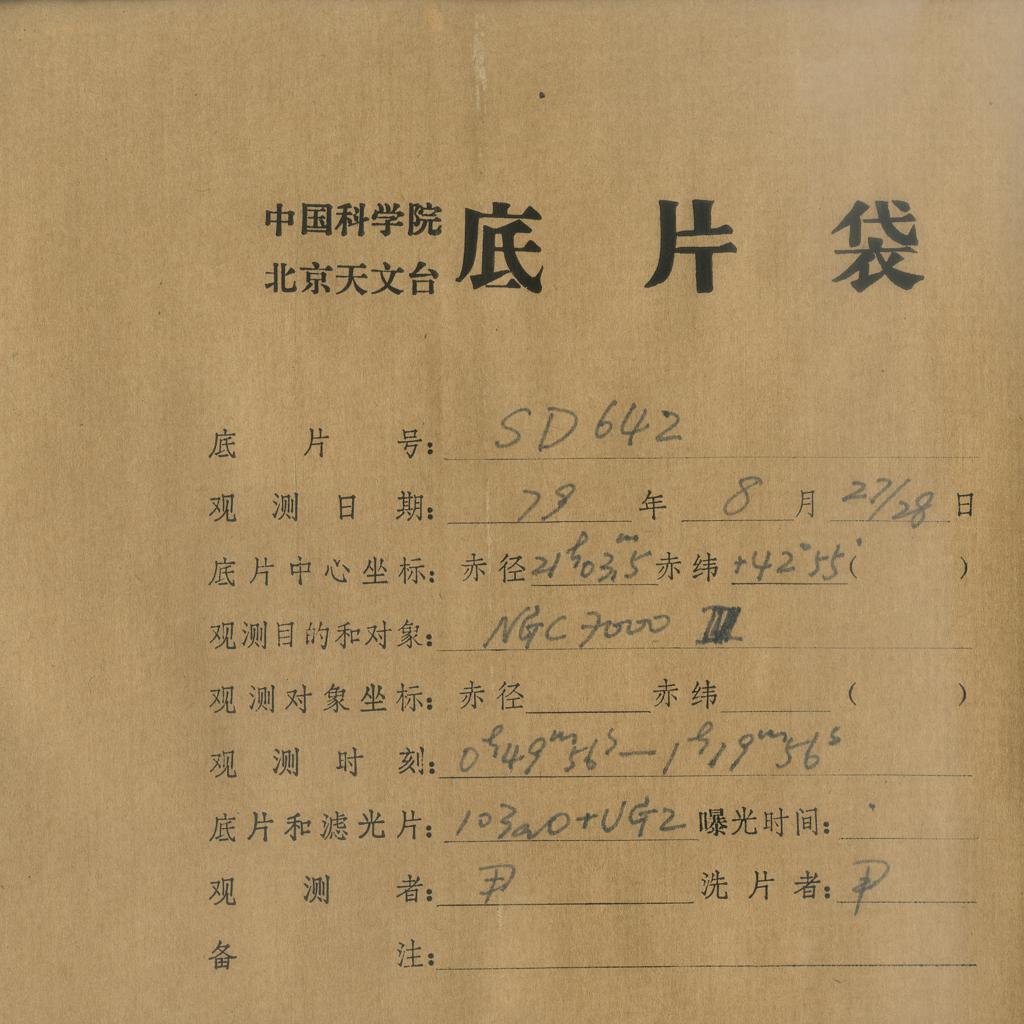 中国科学院
北京天文台 底片袋
底片号: SD642
观测日期: 79年 8月 27/28日
底片中心坐标: 赤径 21h03m.5 赤纬 +42°55' ( )
观测目的和对象: NGC 7000 III
观测对象坐标: 赤径 赤纬 ( )
观测时刻: 0h49m56s — 1h19m56s
底片和滤光片: 103aO+UG2 曝光时间:
观测者: 尹 洗片者: 尹
备注: